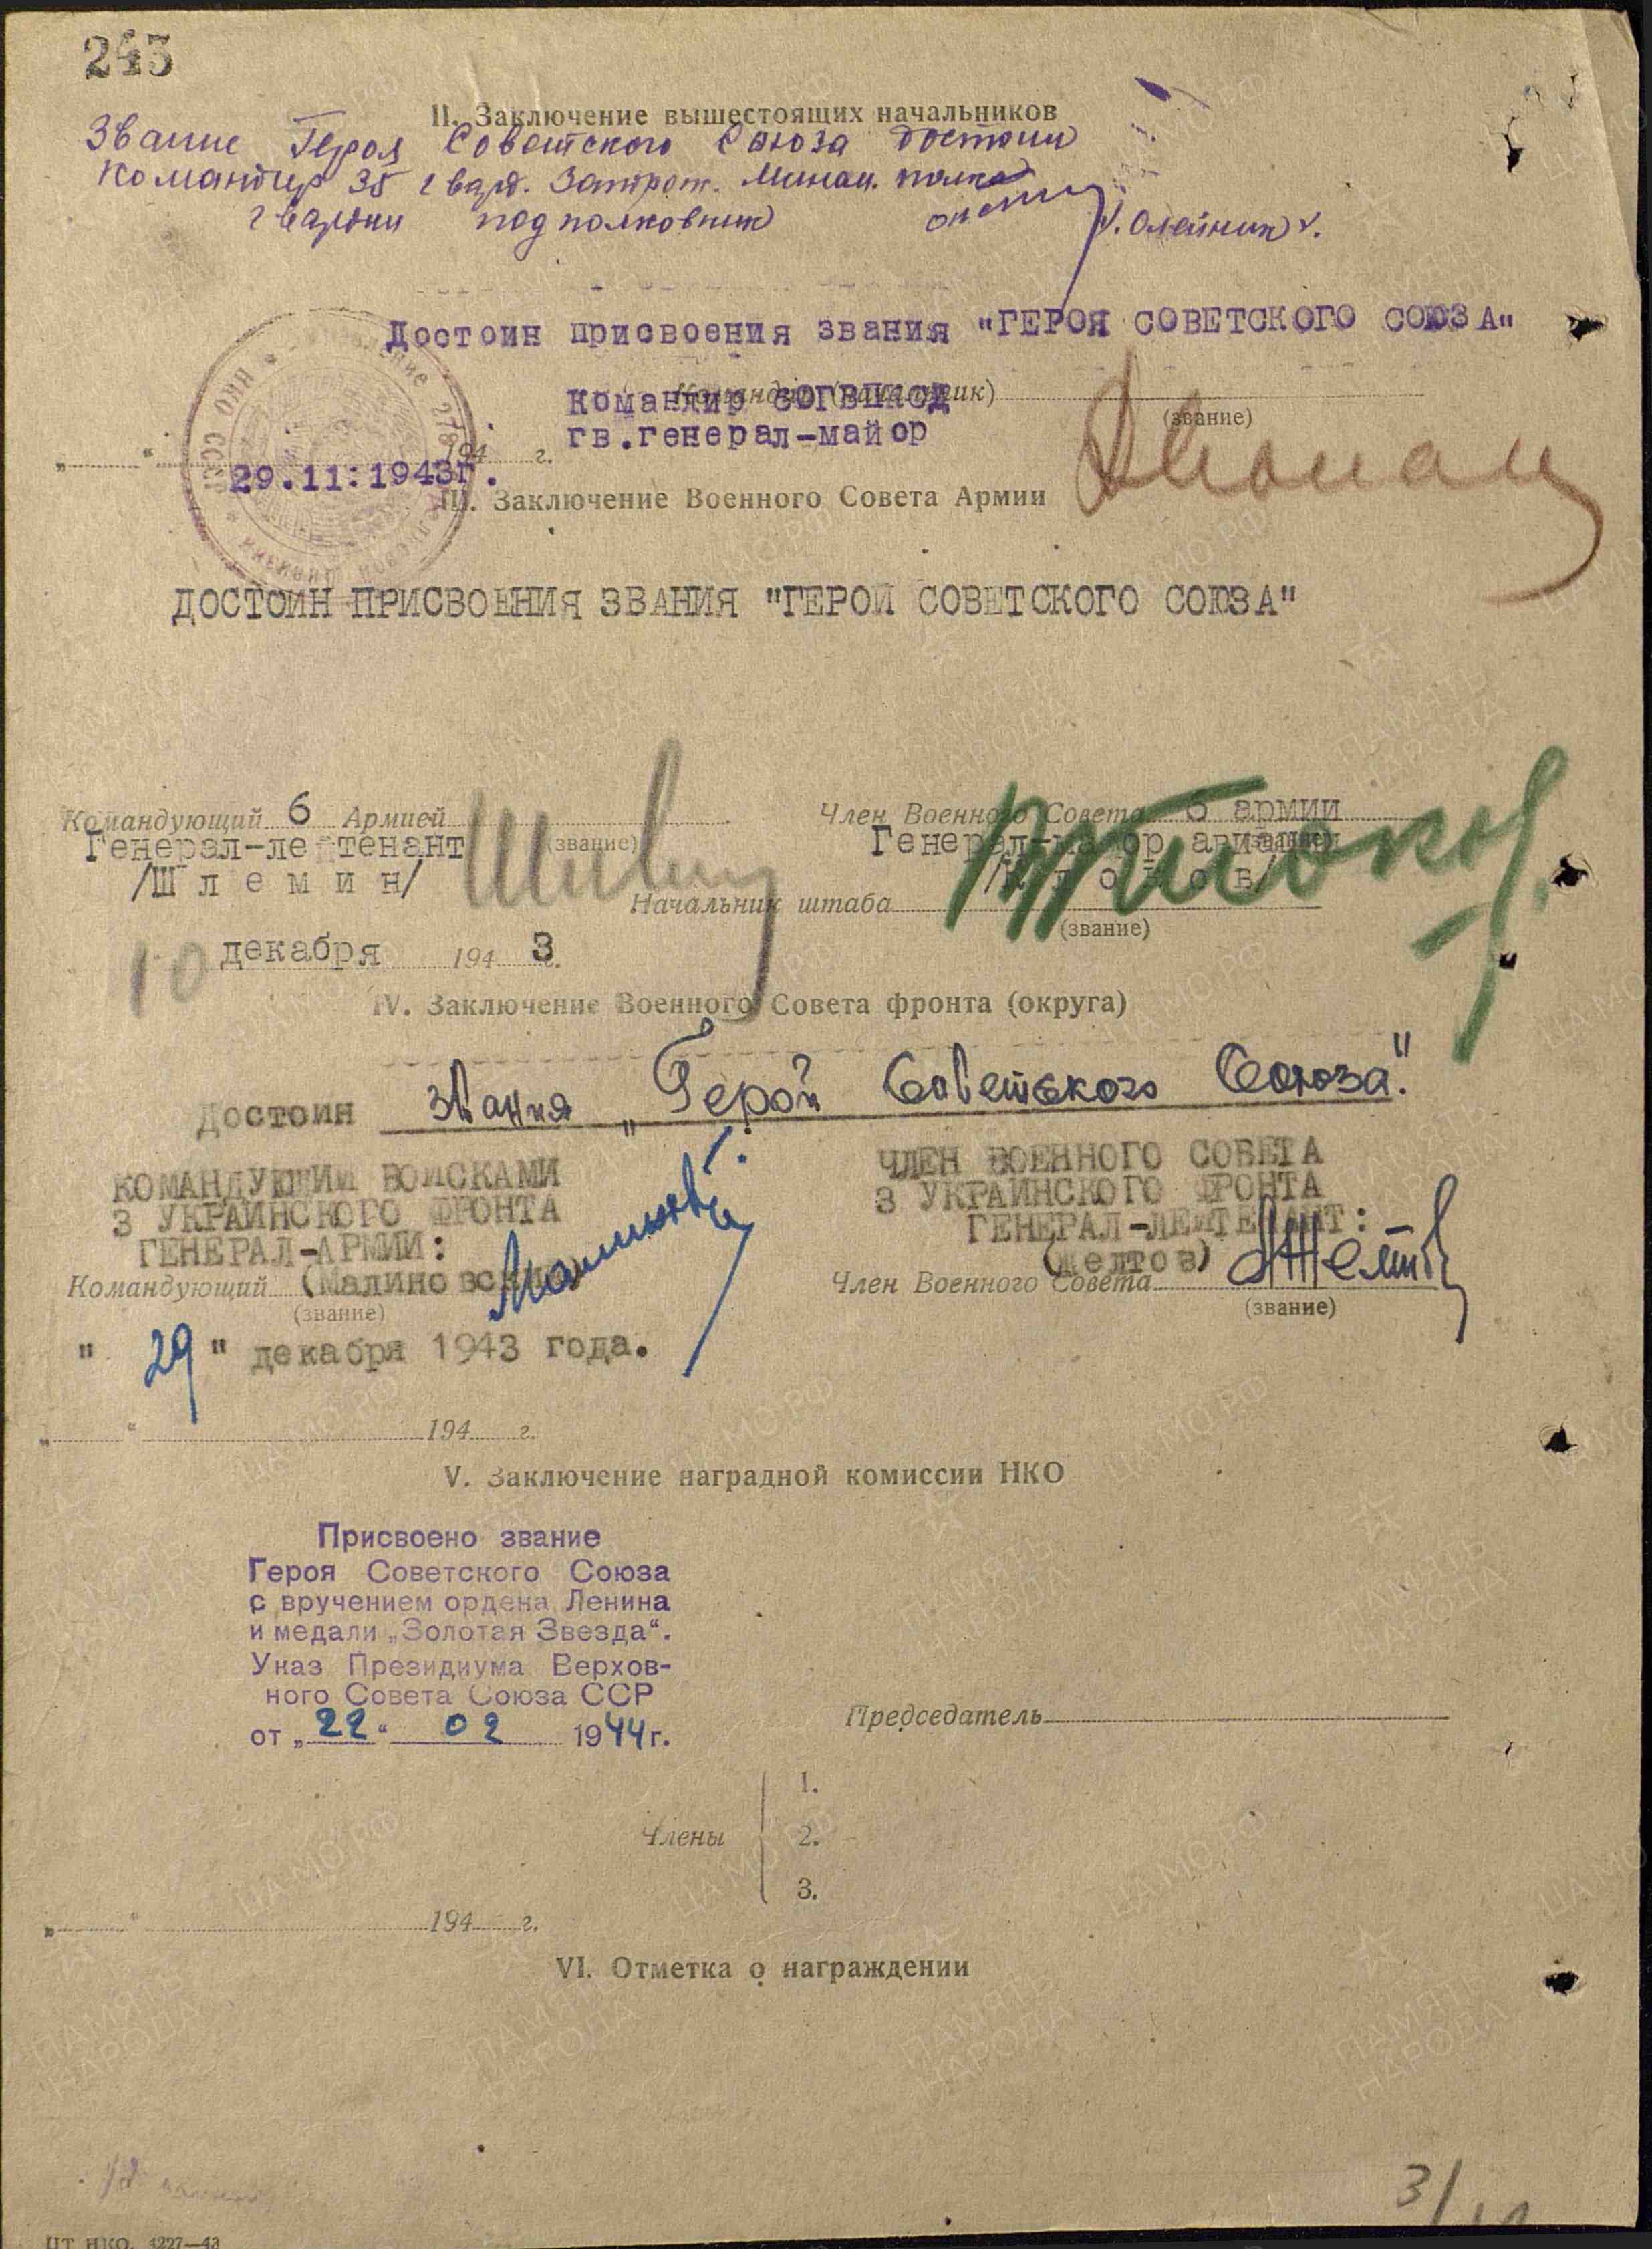 243
II. Заключение вышестоящих начальников
Звание Героя Советского Союза достоин
Командир 35 гвард. Запорож. Минам. полка
гвардии подполковник /. Олейник /.
Достоин присвоения звания "ГЕРОЯ СОВЕТСКОГО СОЮЗА"
Командир (начальник)
Командир
(звание)
гв.генерал-майор
„ “ 194 г.
29.11.1943г.
III. Заключение Военного Совета Армии
ДОСТОИН ПРИСВОЕНИЯ ЗВАНИЯ "ГЕРОЙ СОВЕТСКОГО СОЮЗА"
Командующий 6 Армией
Генерал-лейтенант (звание)
/Шлемин/
Член Военного Совета 6 армии
Генерал-майор авиации
/Клоков/
Начальник штаба
(звание)
10 декабря 1943 г.
IV. Заключение Военного Совета фронта (округа)
Достоин звания „Герой Советского Союза".
КОМАНДУЮЩИЙ ВОЙСКАМИ
3 УКРАИНСКОГО ФРОНТА
ГЕНЕРАЛ-АРМИИ:
Командующий (Малиновский)
(звание)
ЧЛЕН ВОЕННОГО СОВЕТА
3 УКРАИНСКОГО ФРОНТА
ГЕНЕРАЛ-ЛЕЙТЕНАНТ:
(Желтов)
Член Военного Совета
(звание)
" 29 " декабря 1943 года.
„ “ 194 г.
V. Заключение наградной комиссии НКО
Присвоено звание
Героя Советского Союза
с вручением ордена Ленина
и медали „Золотая Звезда“.
Указ Президиума Верхов-
ного Совета Союза ССР
от „22“ 02 1944г.
Председатель
1.
Члены 2.
3.
„ “ 194 г.
VI. Отметка о награждении
ЦТ НКО. 4227—43